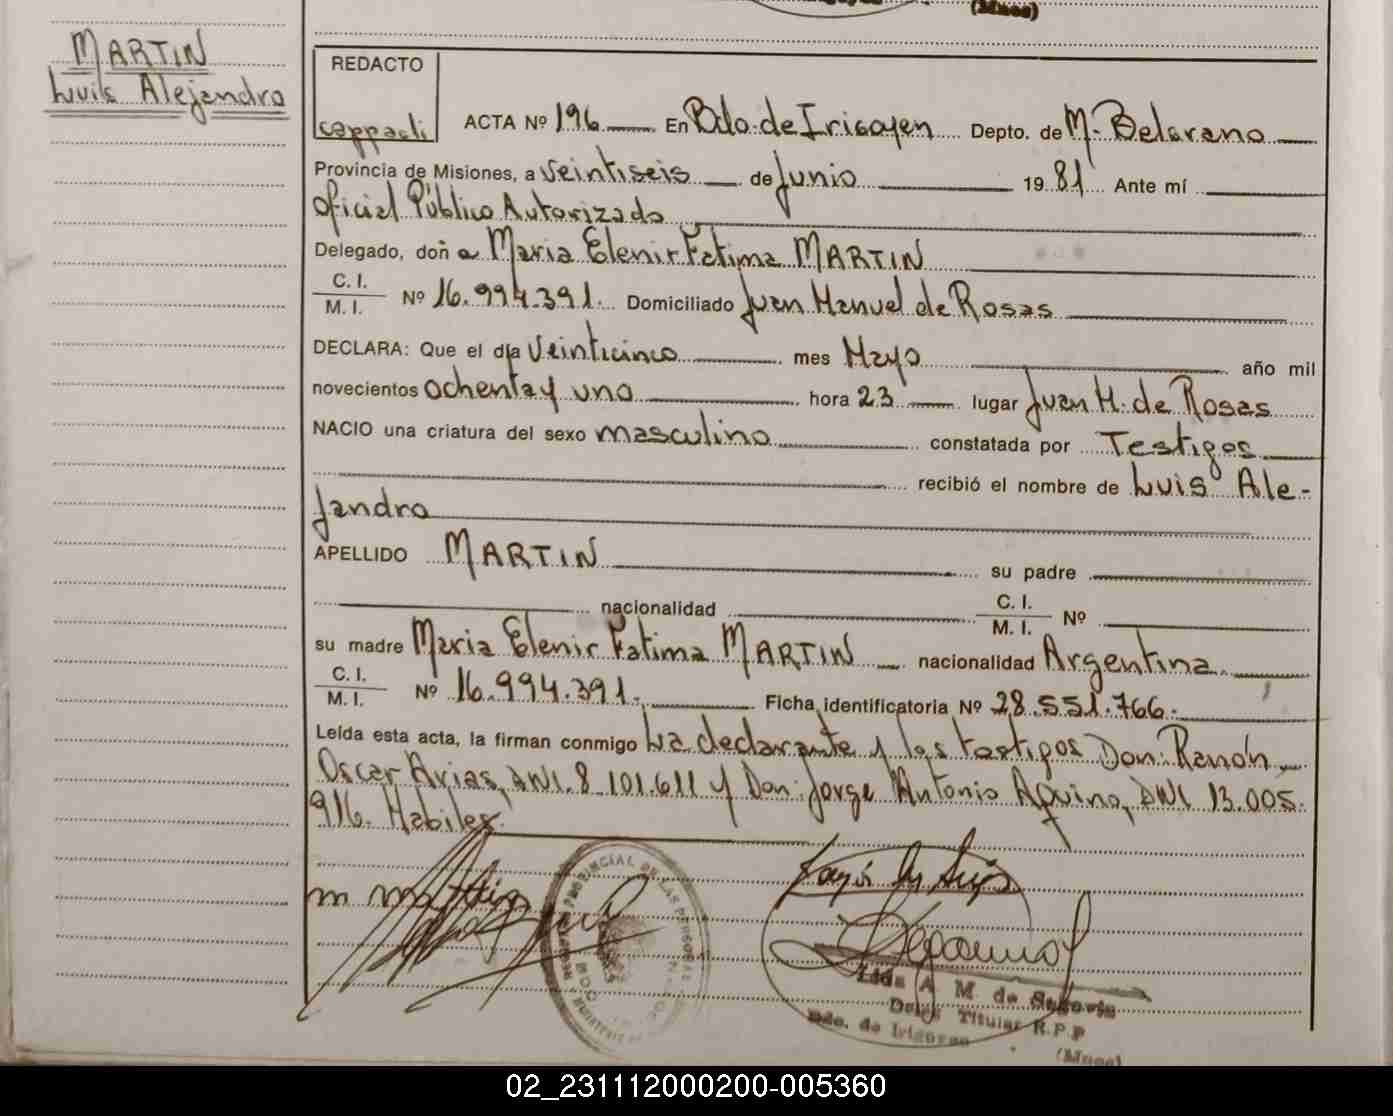 (Mnes)
MARTIN
Luis Alejandro
REDACTO
ACTA Nº 196 En Bdo. de Irigoyen Depto. de M. Belgrano
Provincia de Misiones, a veintiseis de Junio 19 81 Ante mí
Oficial Público Autorizado
Delegado, doña Maria Elenir Fatima MARTIN
C. I.
M. I. Nº 16.994.391. Domiciliado Juan Manuel de Rosas
DECLARA: Que el día Veinticinco mes Mayo año mil
novecientos ochenta y uno hora 23 lugar Juan M. de Rosas
NACIO una criatura del sexo masculino constatada por Testigos
recibió el nombre de Luis Ale-
jandro
APELLIDO MARTIN su padre
nacionalidad C. I.
M. I. Nº
su madre Maria Elenir Fatima MARTIN nacionalidad Argentina.
C. I.
M. I. Nº 16.994.391. Ficha identificatoria Nº 28.551.766.
Leída esta acta, la firman conmigo La declarante y los testigos Don: Ramón
Oscar Arias, DNI. 8.101.611 y Don: Jorge Antonio Aquino, DNI. 13.005.
916. Habiles.
PROVINCIAL DE LAS PERSONAS
A. M. de Segovia
Deleg. Titular R.P.P
Bdo. de Irigoyen
(Mnes)
02_231112000200-005360